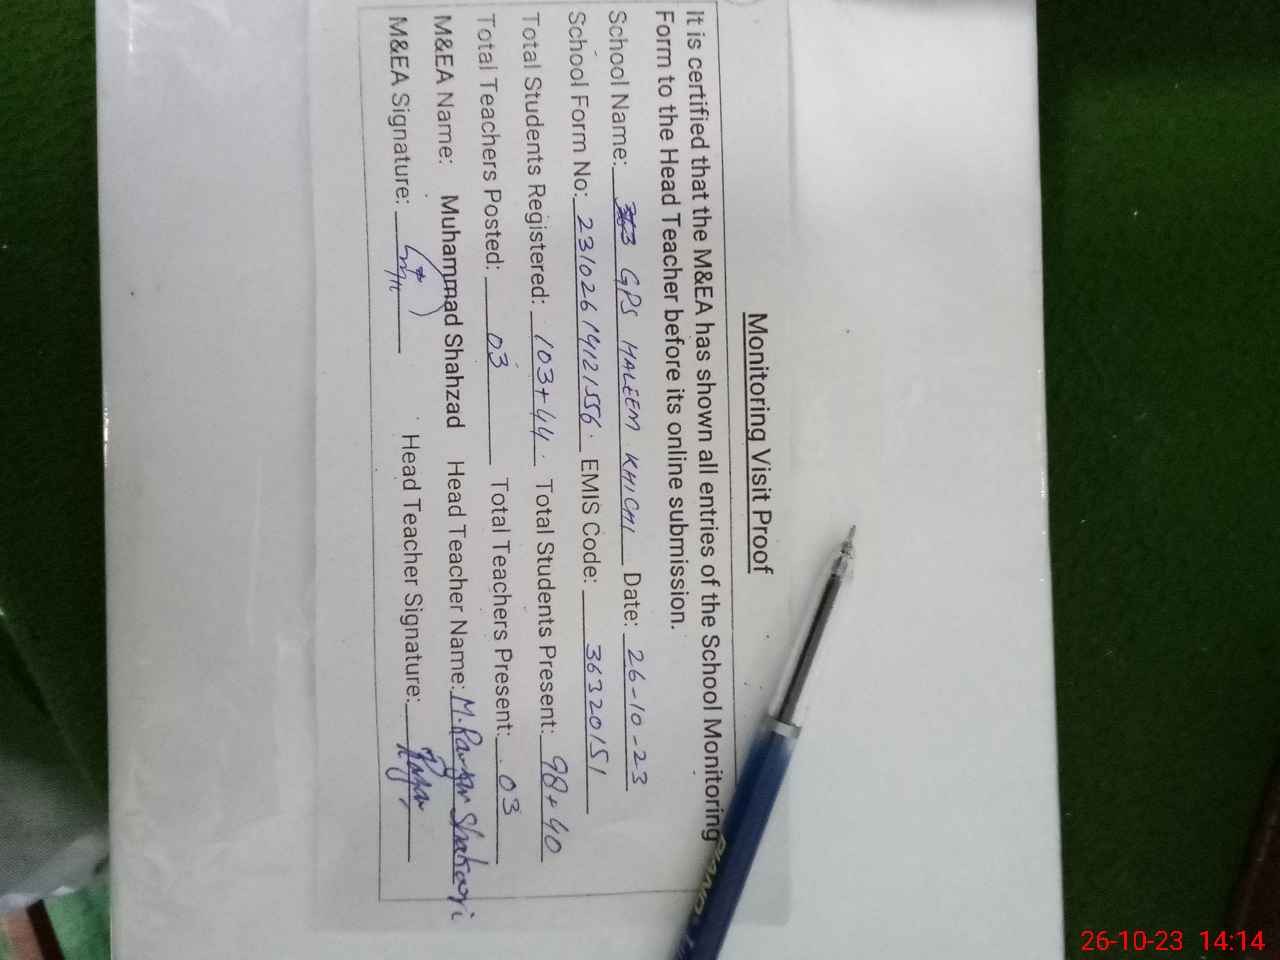 Monitoring Visit Proof
It is certified that the M&EA has shown all entries of the School Monitoring
Form to the Head Teacher before its online submission.
School Name: GPS HALEEM KHICHI Date: 26-10-23
School Form No: 23102614121556 EMIS Code: 36320151
Total Students Registered: 103+44 Total Students Present: 98+40
Total Teachers Posted: 03 Total Teachers Present: 03
M&EA Name: Muhammad Shahzad Head Teacher Name: M.
M&EA Signature: Head Teacher Signature:
PIANO
26-10-23 14:14